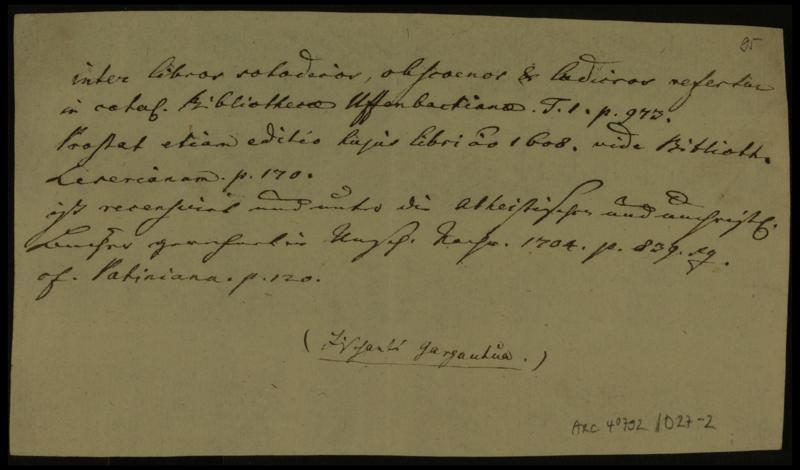 85
inter libros sotadicos, obscoenos & ludicros refertur
in catal. Bibliothecæ Uffenbachianæ. T. 1. p. 973.
Prostat etiam editio hujus libri ao 1608. vide Biblioth.
Leserianam. p. 170.
ist recensirt und unter die Atheistischen und unchristl.
Bücher gerechnet in Unsch. Nachr. 1704. p. 839. sq.
cf. Patiniana. p. 120.
(Fischarts Gargantua.)
ARC 4° 792 / 027-2